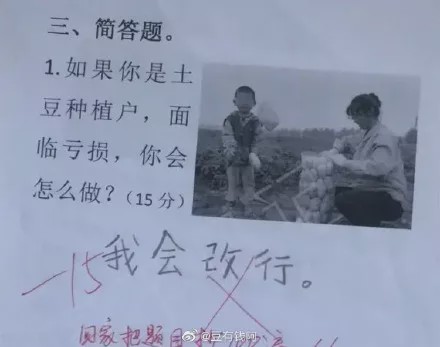 三、简答题。
1.如果你是土
豆种植户,面
临亏损,你会
怎么做?(15分)
-15
我会改行。
回家把题目抄
@豆有钱阿